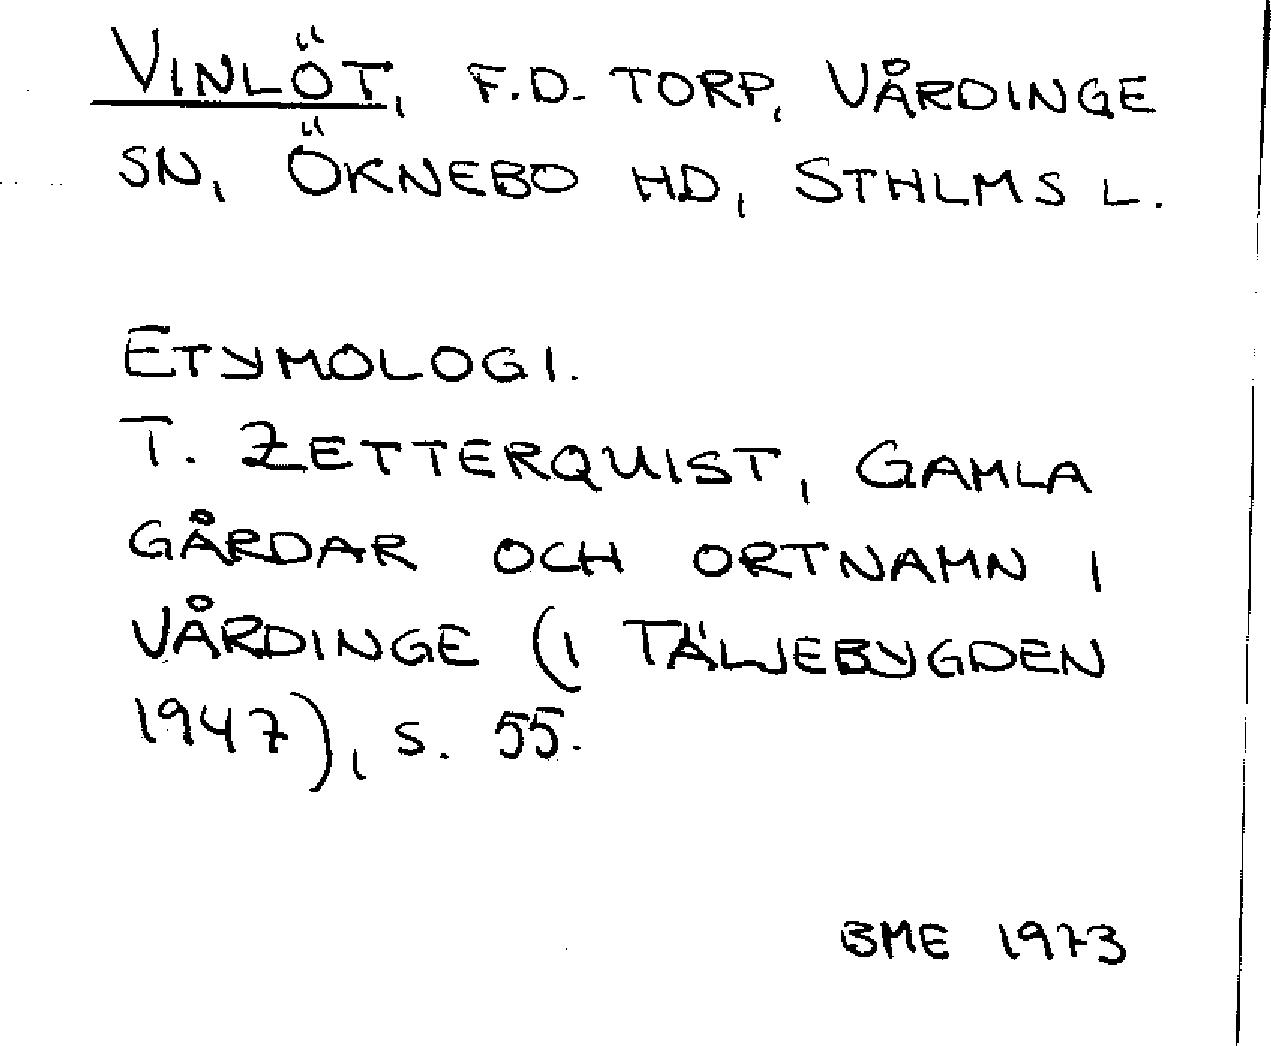 VINLÖT, F.D. TORP, VÅRDINGE
SN, ÖKNEBO HD, STHLMS L.
ETYMOLOGI.
T. ZETTERQUIST, GAMLA
GÅRDAR OCH ORTNAMN I
VÅRDINGE (I TÄLJEBYGDEN
1947), S. 55.
BME 1973